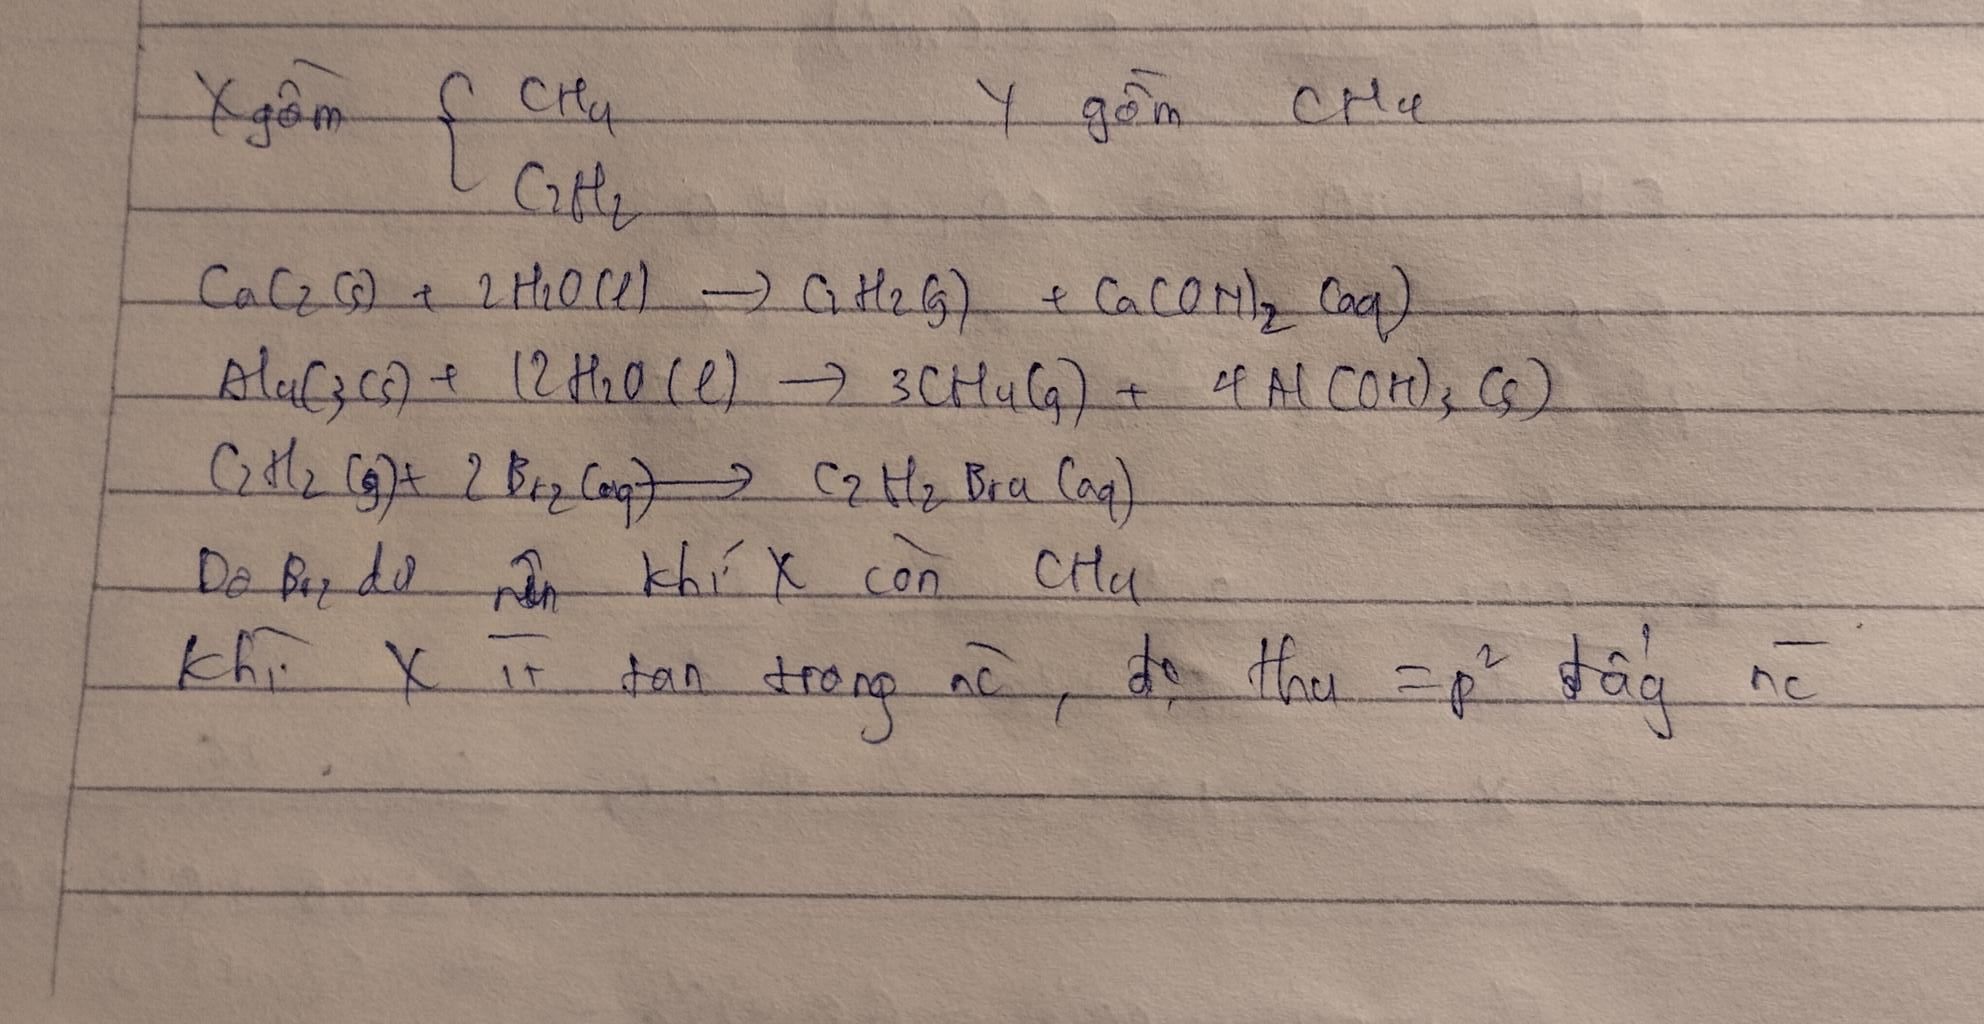 X gồm { CH4 Y gồm CH4
C2H2
CaC2 (s) + 2H2O (l) → C2H2 (g) + Ca(OH)2 (aq)
Al4C3 (s) + 12H2O (l) → 3CH4 (g) + 4Al(OH)3 (s)
C2H2 (g) + 2Br2 (aq) → C2H2Br4 (aq)
Do Br2 dư nên khí X còn CH4
Khí X ít tan trong nc, do thu = p² đẩy nc